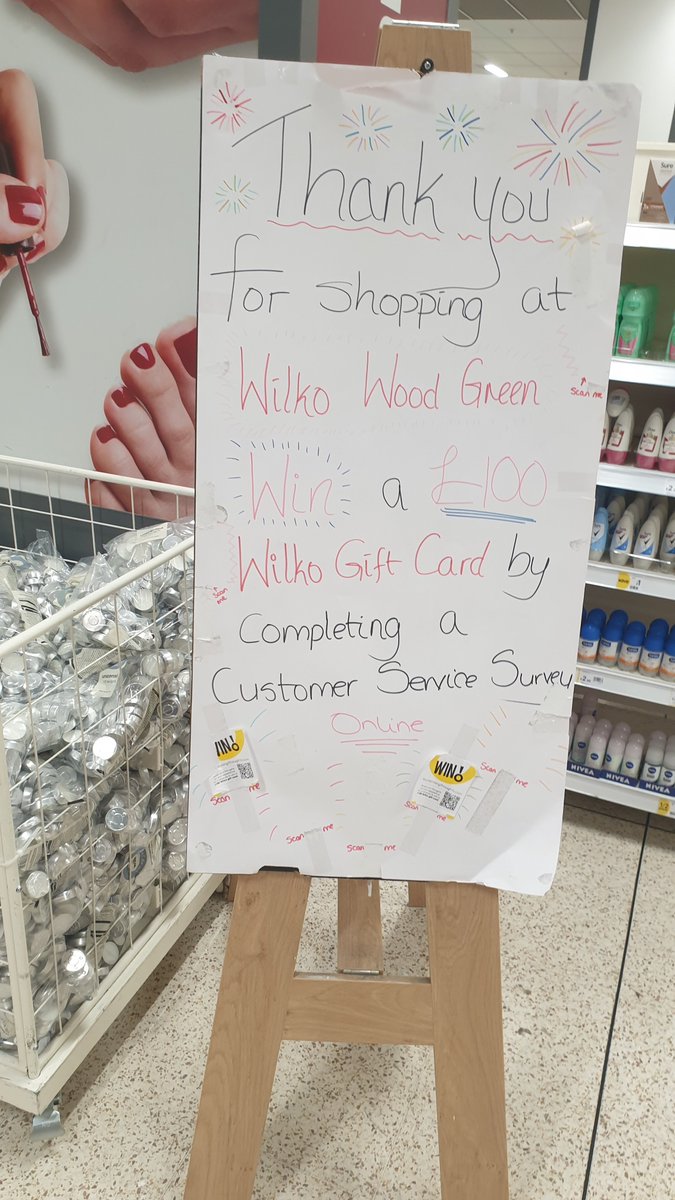 Thank you
for shopping at
Wilko Wood Green
Scan me
Win a £100
Wilko Gift Card by
Scan me
Completing a
Customer Service Survey
Online
WIN!
WIN!
Scan me
Scan me
Scan me
Scan me
Scan me
Sure
NIVEA
NIVEA
NIVEA